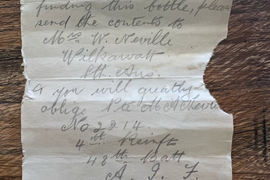 finding this bottle, please
send the contents to
Mrs W. Neville
Wilkawatt
Sth. Aus.
& you will greatly
oblige Pte
No 2914
4th Reinft
48th Batt
A. I. F.